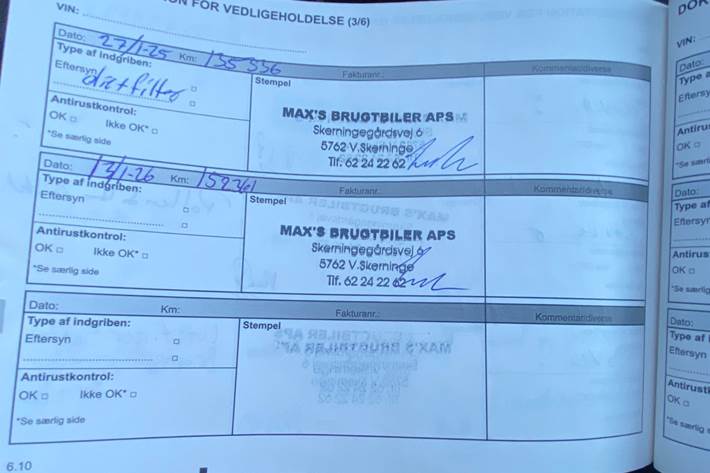 ION FOR VEDLIGEHOLDELSE (3/6)
VIN:
Dato: 27/1-25 Km: 135 336
Type af indgriben:
Eftersyn
olie+filter
Antirustkontrol:
OK Ikke OK*
*Se særlig side
Fakturanr.:
Kommentar/diverse
Stempel
MAX'S BRUGTBILER APS
Skerningegårdsvej 6
5762 V.Skerninge
Tlf. 62 24 22 62
Dato: 13/1-26 Km:
Type af indgriben:
Eftersyn
Antirustkontrol:
OK Ikke OK*
*Se særlig side
Fakturanr.:
Kommentar/diverse
Stempel
MAX'S BRUGTBILER APS
Skerningegårdsvej 6
5762 V.Skerninge
Tlf. 62 24 22 62
Dato: Km:
Type af indgriben:
Eftersyn
Antirustkontrol:
OK Ikke OK*
*Se særlig side
Fakturanr.:
Kommentar/diverse
Stempel
6.10
DOK
VIN:
Dato:
Type a
Eftersy
Antirus
OK
*Se særli
Dato:
Type af
Eftersyn
Antirus
OK
*Se særlig
Dato:
Type af i
Eftersyn
Antirustk
OK
*Se særlig s